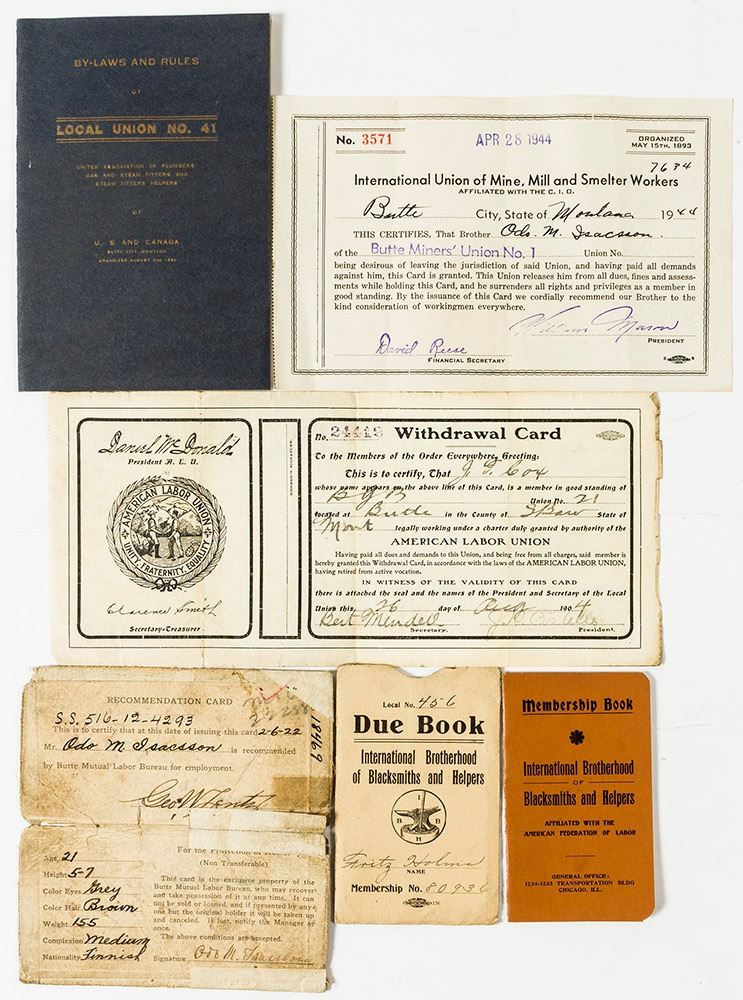 BY-LAWS AND RULES
OF
LOCAL UNION NO. 41
UNITED ASSOCIATION OF PLUMBERS
GAS AND STEAM FITTERS AND
STEAM FITTERS HELPERS
OF
U. S AND CANADA.
BUTTE CITY, MONTANA
No. 3571
APR 28 1944
ORGANIZED
MAY 15TH, 1893
7634
International Union of Mine, Mill and Smelter Workers
AFFILIATED WITH THE C. I. O.
Butte City, State of Montana 1944
THIS CERTIFIES, That Brother Odo. M. Isacsson.
of the Butte Miners' Union No. 1 Union No.
being desirous of leaving the jurisdiction of said Union, and having paid all demands
against him, this Card is granted. This Union releases him from all dues, fines and assess-
ments while holding this Card, and he surrenders all rights and privileges as a member in
good standing. By the issuance of this Card we cordially recommend our Brother to the
kind consideration of workingmen everywhere.
William Mason
PRESIDENT
David Reese
FINANCIAL SECRETARY
Daniel McDonald
President A. L. U.
AMERICAN LABOR UNION
UNITY, FRATERNITY, EQUALITY
Clarence Smith
Secretary-Treasurer
No. Withdrawal Card
To the Members of the Order Everywhere, Greeting:
This is to certify, That J. G. Cox
whose name appears on the above line of this Card, is a member in good standing of
Union No. 21
located at Butte in the County of S Bow State of
Mont legally working under a charter duly granted by authority of the
AMERICAN LABOR UNION
Having paid all dues and demands to this Union, and being free from all charges, said member is
hereby granted this Withdrawal Card, in accordance with the laws of the AMERICAN LABOR UNION,
having retired from active vocation.
IN WITNESS OF THE VALIDITY OF THIS CARD
there is attached the seal and the names of the President and Secretary of the Local
Union this 26 day of Aug 1904
Bert Mendell
Secretary. President.
RECOMMENDATION CARD
S.S. 516-12-4293
This is to certify that at this date of issuing this card 2-6-22
Mr. Odo M Isacsson is recommended
by Butte Mutual Labor Bureau for employment.
18469
Age 21
Height 5-7
Color Eyes Grey
Color Hair Brown
Weight 155
Complexion Medium
Nationality Finnish
For the Protection of
(Non Transferable)
This card is the exclusive property of the
Butte Mutual Labor Bureau, who may recover
and take possession of it at any time. It can
not be sold or loaned, and if presented by any
one but the original holder it will be taken up
and canceled. If lost, notify the Manager at
once.
The above conditions are accepted.
Signature Odo M. Isacsson
Local No. 456
Due Book
International Brotherhood
of Blacksmiths and Helpers
I
B B
H
Fritz Holms
NAME
Membership No. 80936
Membership Book
International Brotherhood
OF
Blacksmiths and Helpers
AFFILIATED WITH THE
AMERICAN FEDERATION OF LABOR
GENERAL OFFICE:
1234-1235 TRANSPORTATION BLDG
CHICAGO, ILL.